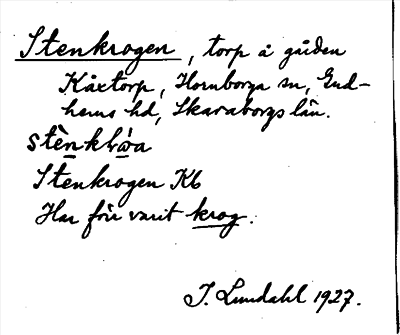 Stenkrogen, torp å gården
Kåxtorp, Hornborga sn, Gud-
hems hd, Skaraborgs län.
stènkrɷa
Stenkrogen Kb
Har förr varit krog.
I. Lundahl 1927.